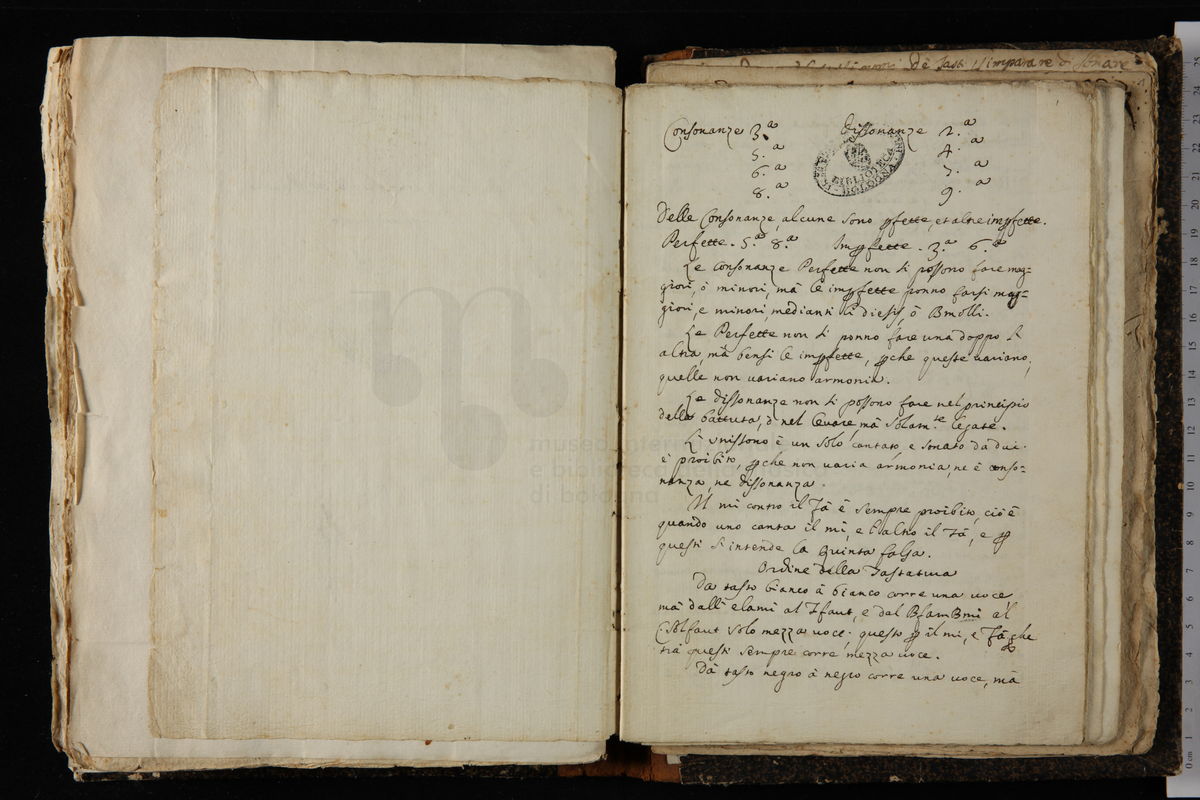 De tasti p imparare à sonare
Consonanze 3.a Dissonanze 2.a
5.a 4.a
6.a 7.a
8.a 9.a
BIBLIOTECA
BOLOGNA
Delle Consonanze, alcune sono pfette, et altre impfette.
Perfette. 5.a 8.a Impfette. 3.a 6.a
Le Consonanze Perfette non si possono fare mag=
giori, ò minori, mà le impfette ponno farsi mag=
giori, e minori, medianti li diesis, ò Bmolli.
Le Perfette non si ponno fare una doppo l'
altra, mà bensi le impfette, pche queste variano,
quelle non variano armonia.
Le dissonanze non si possono fare nel principio
della battuta, ò nel levare mà solam.te legate.
L'unissono è un solo cantato, e sonato da dui.
è proibito, pche non varia armonia, ne è conso=
nanza, ne dissonanza.
Il mi contro il Fà è sempre proibito, cioè
quando uno canta il mi, e l'altro il Fà, e p
questi s'intende la Quinta falsa.
Ordine della Tastatura
Da tasto bianco à bianco corre una voce
mà dall' elami al Ffaut, e dal BfaBmi al
C.solfaut solo mezza voce; questo p il mi, e Fà, che
trà questi sempre corre mezza voce.
Dà tasto negro à negro corre una voce, mà
museo intern
e biblioteca
di bologna